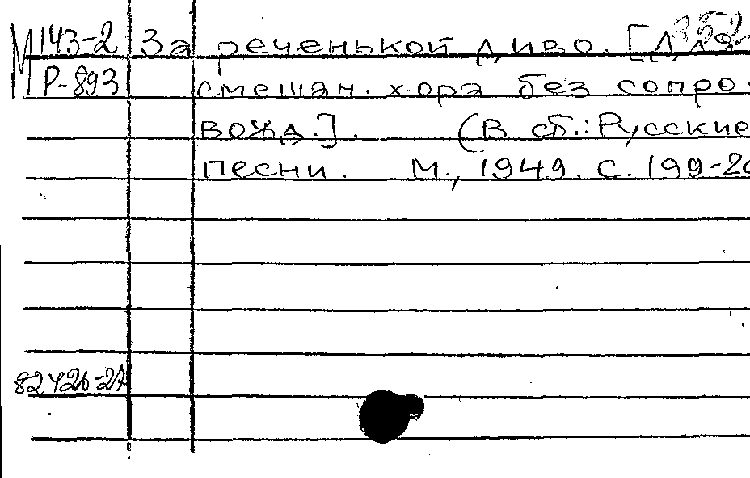 М 143-2 За реченькой диво. [Для 352
Р-893 смешан. хора без сопро-
вожд.]. (В сб.: Русские
песни. М., 1949. С. 199-20